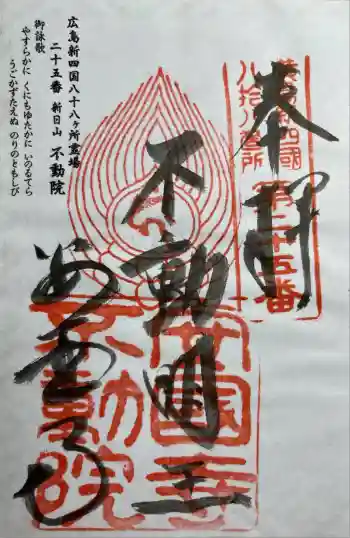 広島新四国八十八ヶ所霊場
二十五番 新日山 不動院
御詠歌
やすらかに くにもゆたかに いのるてら
うごかずたえぬ のりのともしび
奉拝
廣島新四國
八拾八箇所
第二十五番
不動明王
安国寺
不動院